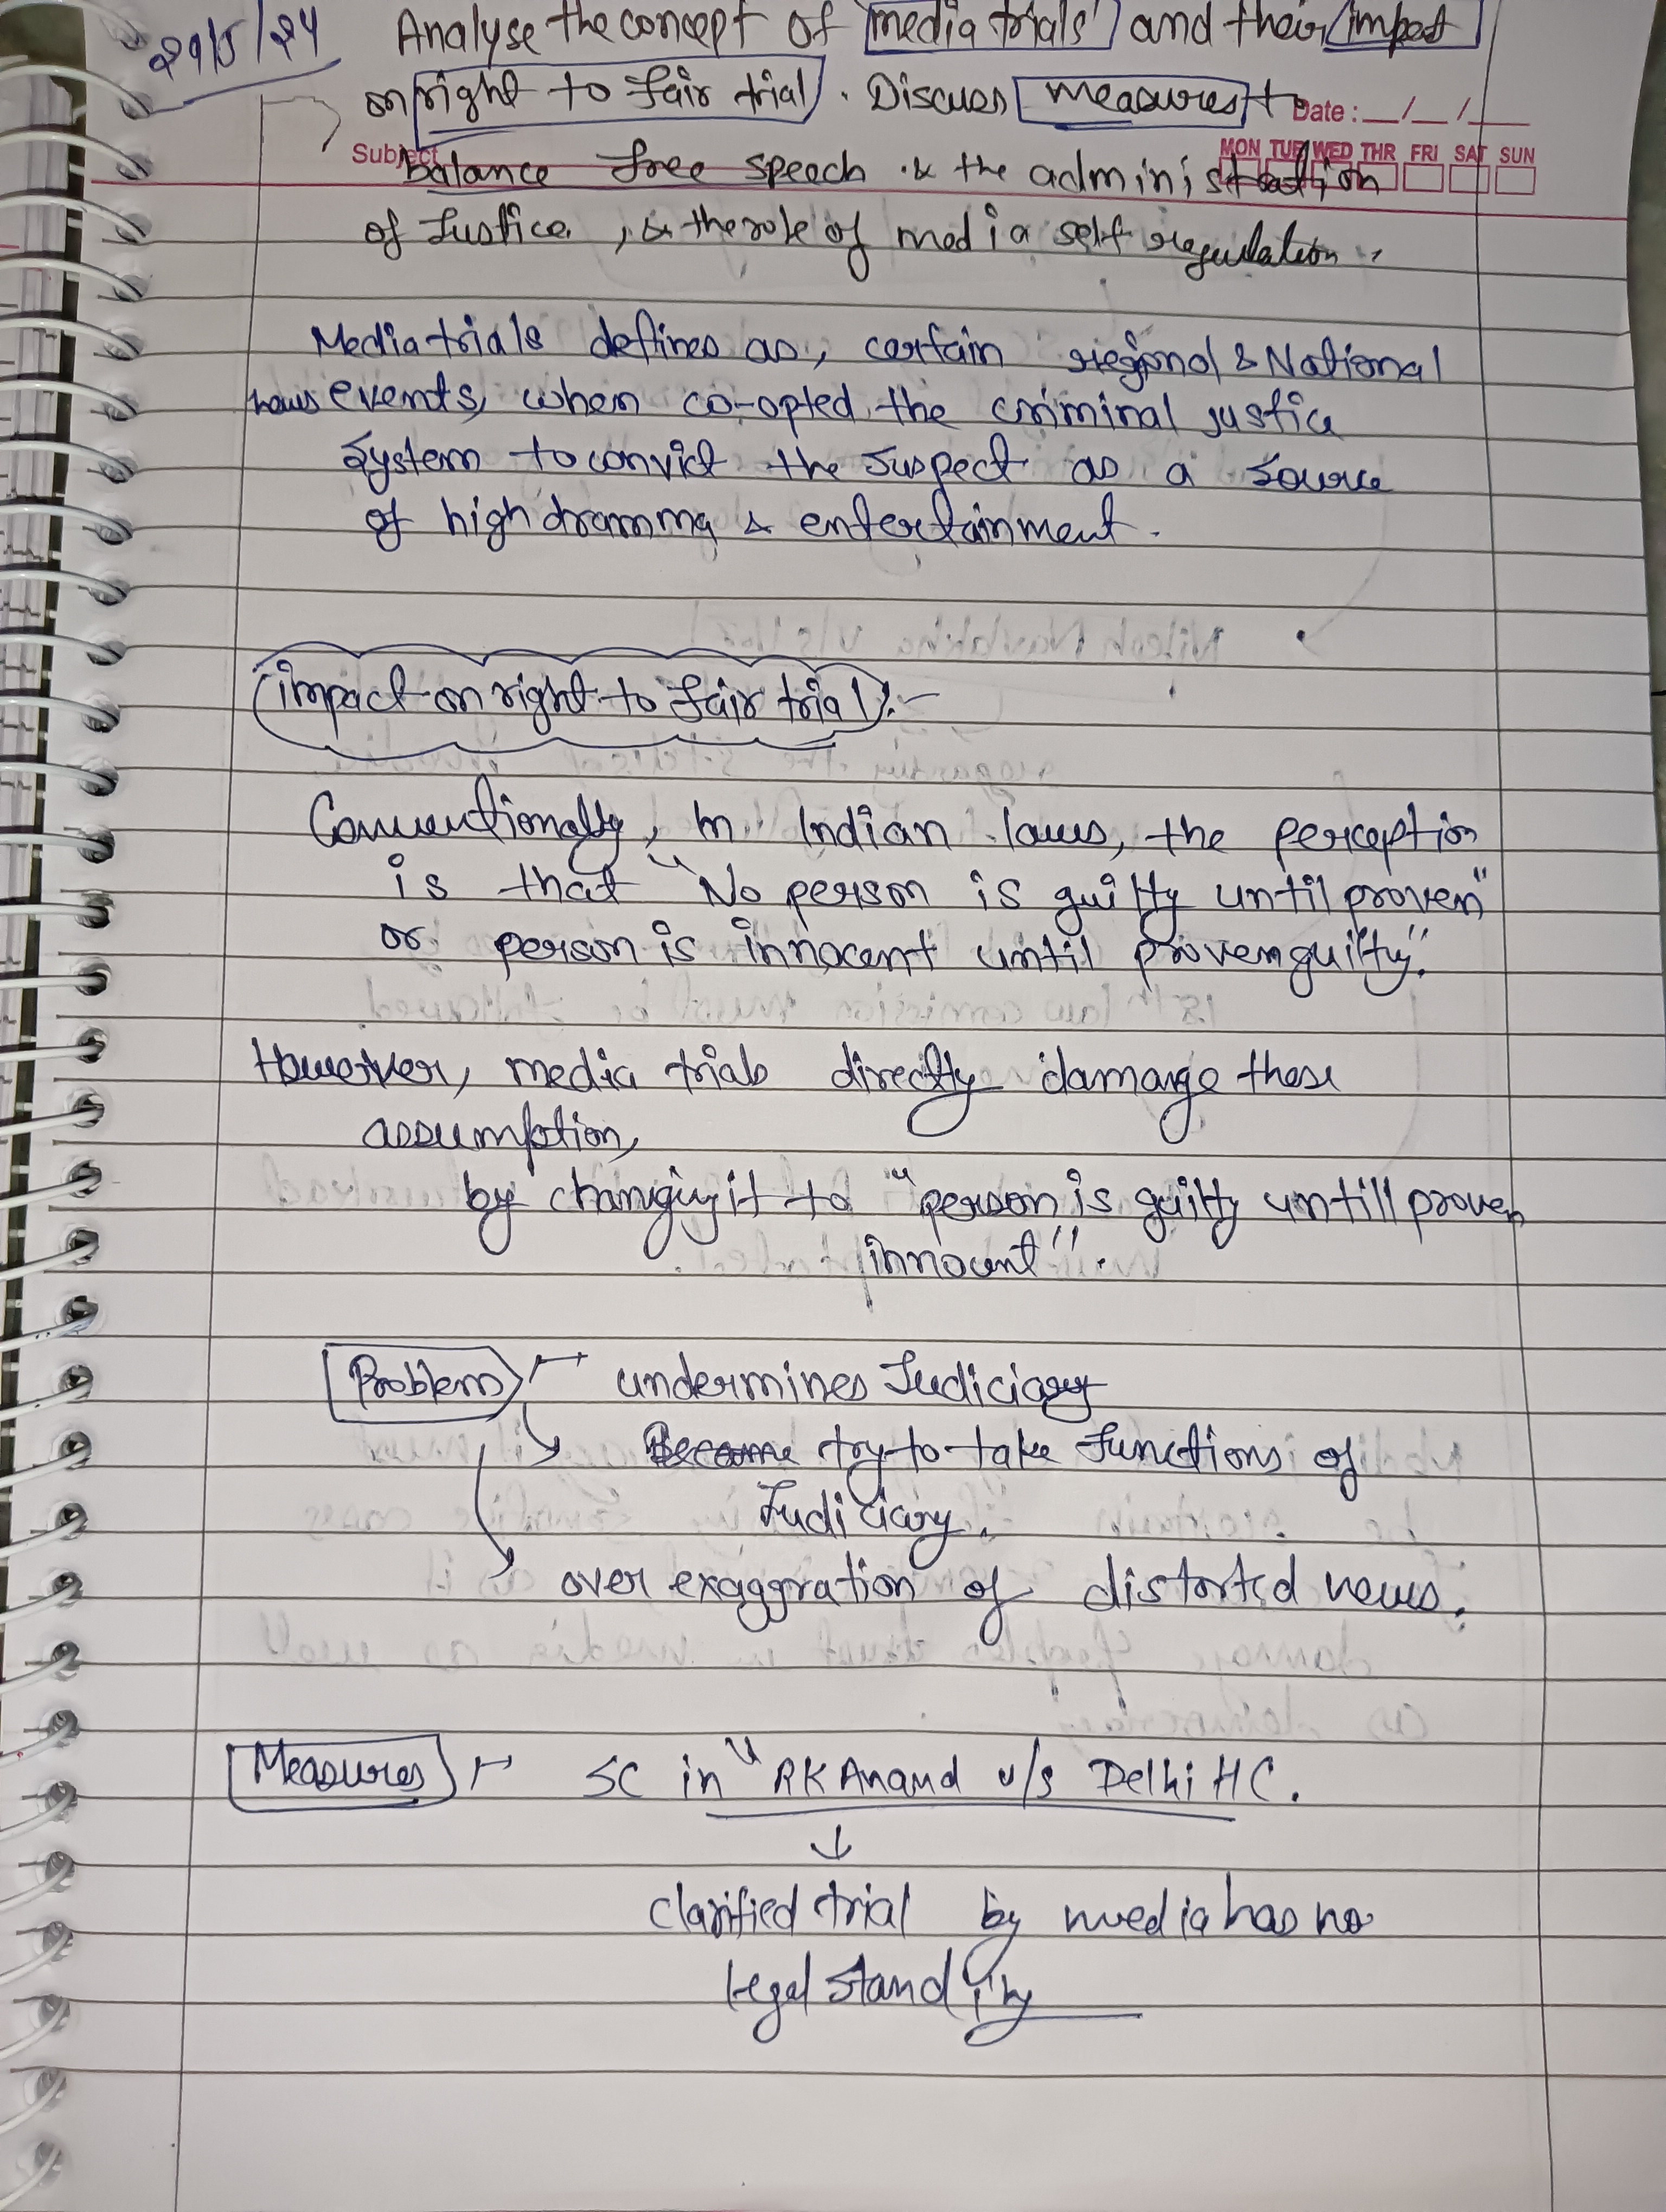 29/5/24 Analyse the concept of 'media trials' and their impact
on right to fair trial. Discuss measures to
Date: __/__/__
Subject
MON TUE WED THR FRI SAT SUN
balance free speech & the administration
of Justice, & the role of media self regulation.
Media trials defines as, certain regional & National
news events, when co-opted the criminal justice
System to convict the suspect as a source
of high dramma & entertainment.
Impact on right to fair trial :-
Conventionally, in Indian laws, the perception
is that "No person is guilty until proven"
or person is innocent until proven guilty."
However, media trials directly damange these
assumption,
by changing it to "person is guilty untill proven
innocent".
Problem :- undermines Judiciary
try to take functions of
Judiciary.
over exaggration of distorted news.
Measures :- SC in "RK Anand v/s Delhi HC.
↓
clarified trial by media has no
legal standing